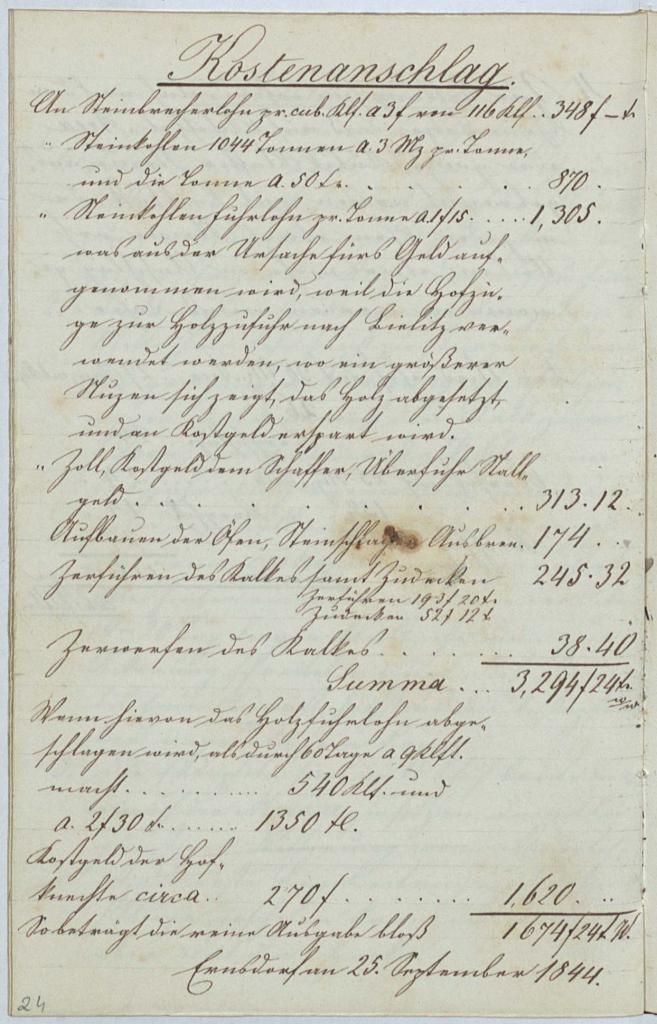 Kostenanschlag.
An Steinbrecherlohn pr. cub. Klf. a 3 f von 116 Klf. .. 348 f – x
" Steinkohlen 1044 Tonnen a. 3 Mz pr. Tonne,
und die Tonne a. 50 x. . . . . . 870 .
" Steinkohlenfuhrlohn pr. Tonne a 1 f 15 . . . . . 1,305 .
was aus der Ursache fürs Geld auf-
genommen wird, weil die Hofzü-
ge zur Holzzufuhr nach Bielitz ver-
wendet werden, wo ein größerer
Nuzen sich zeigt, das Holz abgesetzt,
und an Kostgeld erspart wird.
" Zoll, Kostgeld dem Schaffer, Überfuhr Stall-
geld . . . . . . . . . 313 . 12 .
Aufbauen der Öfen, Steinschlagen Ausbren. 174 . .
Zerführen des Kalkes samt Zudecken 245 . 32
Zerführen 193 f 20 x.
Zudecken 52 f 12 x
Zerwerfen des Kalkes . . . . . . . 38 . 40
Summa . . . 3,294 f 24 x.
Wenn hievon das Holzfuhrlohn abge-
schlagen wird, als durch 60 Tage a 9 Klft.
macht . . . . . . . . . . 540 Klf. und
a. 2 f 30 x. . . . . . . 1350 fl.
Kostgeld der Hof-
knechte circa . . 270 f . . . . . . . . 1,620 . . .
So beträgt die reine Ausgabe bloß 1674 f 24 x W.
Ernsdorf an 25. September 1844.
24